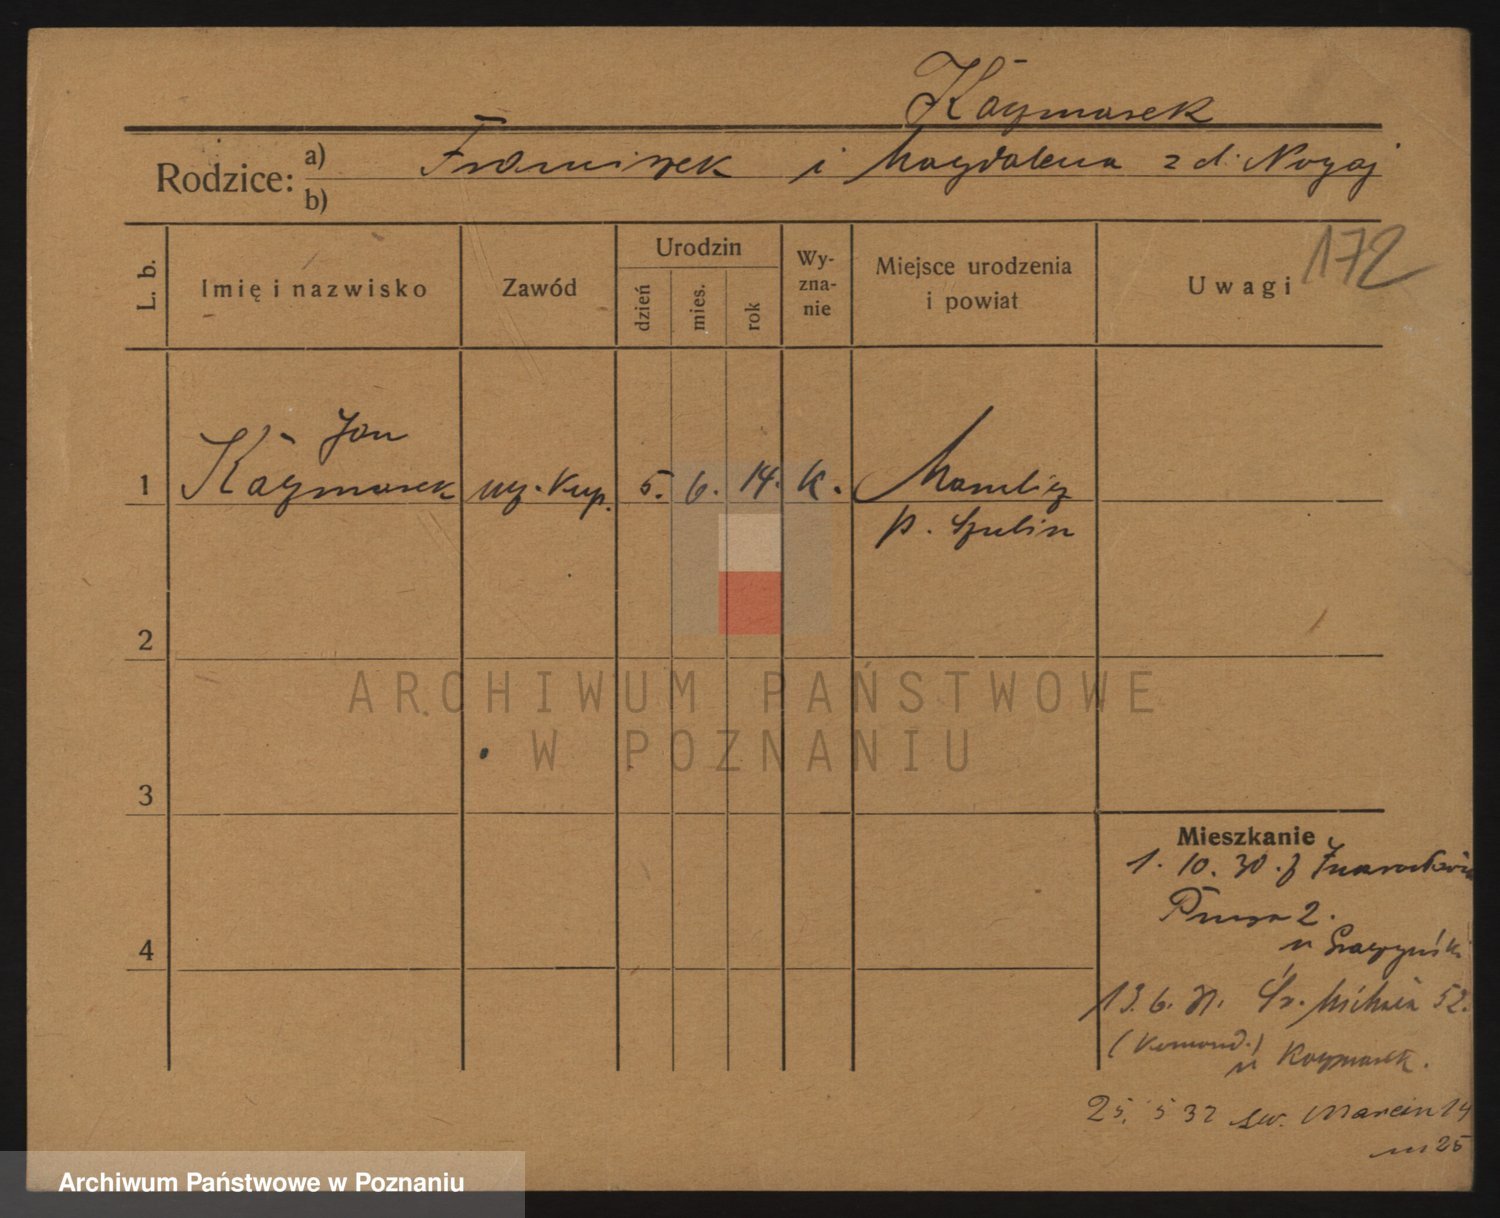 Kaczmarek
Rodzice:
a) Franciszek i Magdalena z d. Nogaj
b)
172
L. b.
Imię i nazwisko
Zawód
Urodzin
dzień
mies.
rok
Wy-
zna-
nie
Miejsce urodzenia
i powiat
Uwagi
Jan
1 Kaczmarek ucz. kup. 5. 6. 14. k. Mamlicz
p. Szubin
2
3
4
Mieszkanie
1. 10. 30. z Inowrocławia
Prusa 2.
u
13. 6. 31. Śr. 52.
(Komand.)
u Kaczmarek.
25. 5 32 św. Marcin 14
m 25
ARCHIWUM PAŃSTWOWE
W POZNANIU
Archiwum Państwowe w Poznaniu